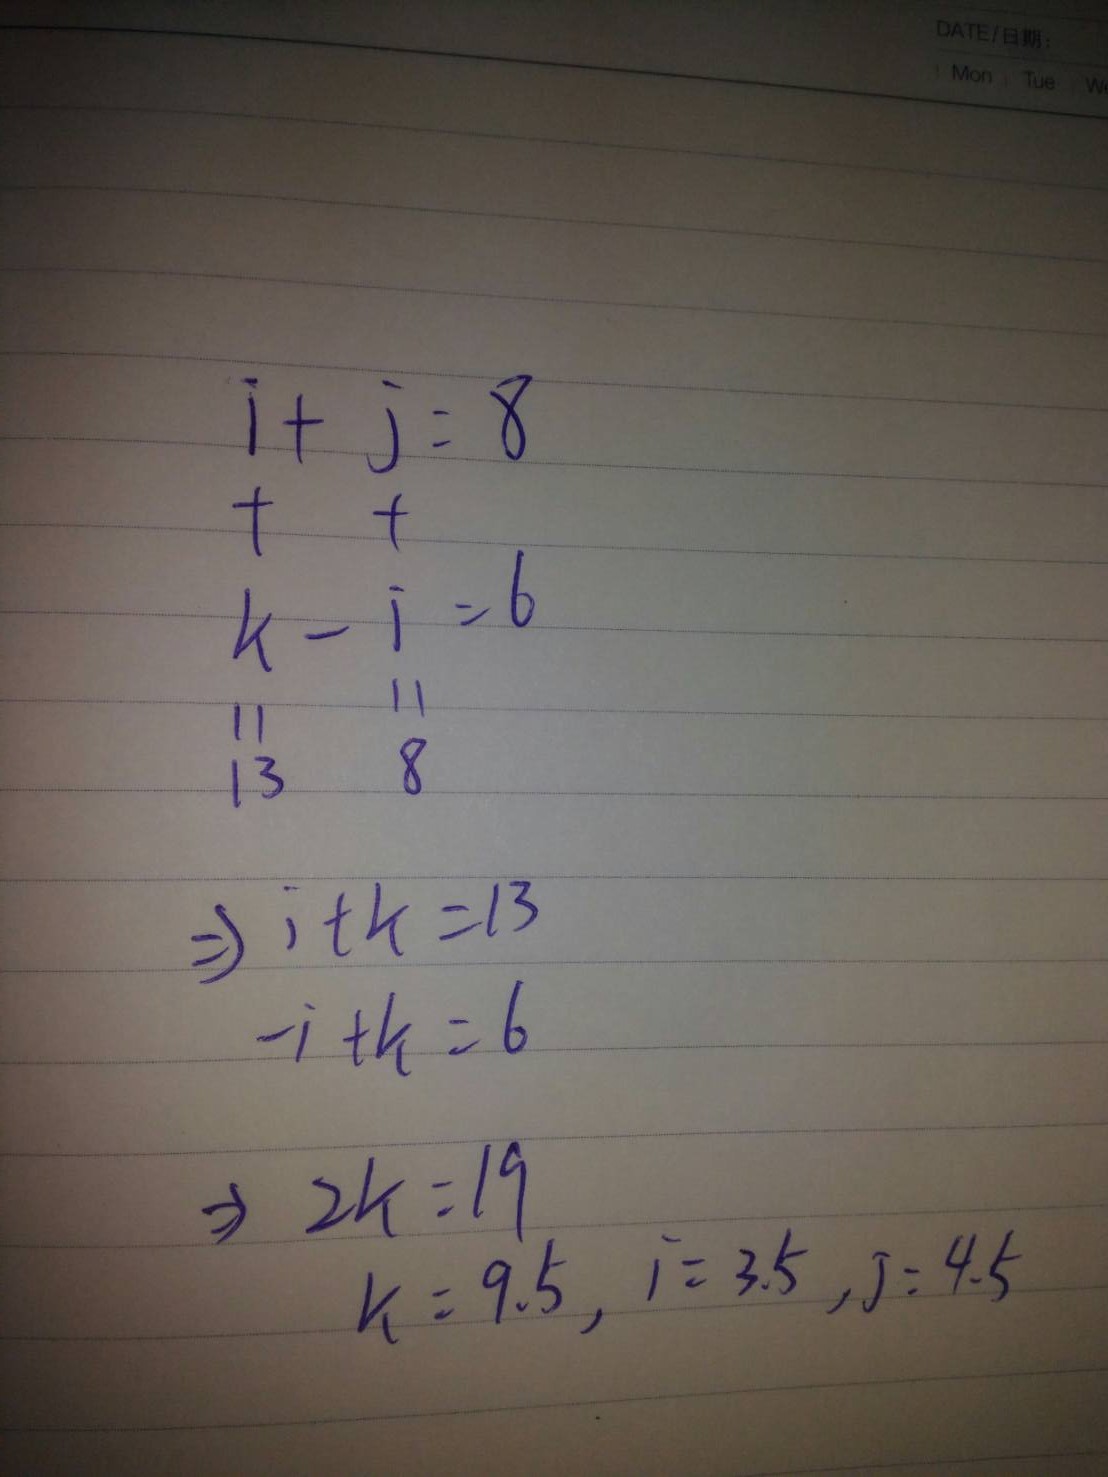 DATE/日期:
Mon Tue We
i + j = 8
+ +
k - i = 6
|| ||
13 8
⇒ i + k = 13
-i + k = 6
⇒ 2k = 19
k = 9.5, i = 3.5, j = 4.5